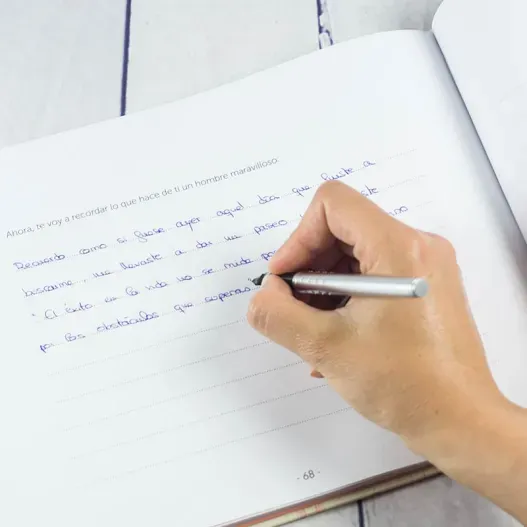 Ahora, te voy a recordar lo que hace de ti un hombre maravilloso.
Recuerdo como si fuese ayer aquel día que fuiste a
buscarme, me llevaste a dar un paseo
"El éxito en la vida no se mide por
por los obstáculos que superas
- 68 -